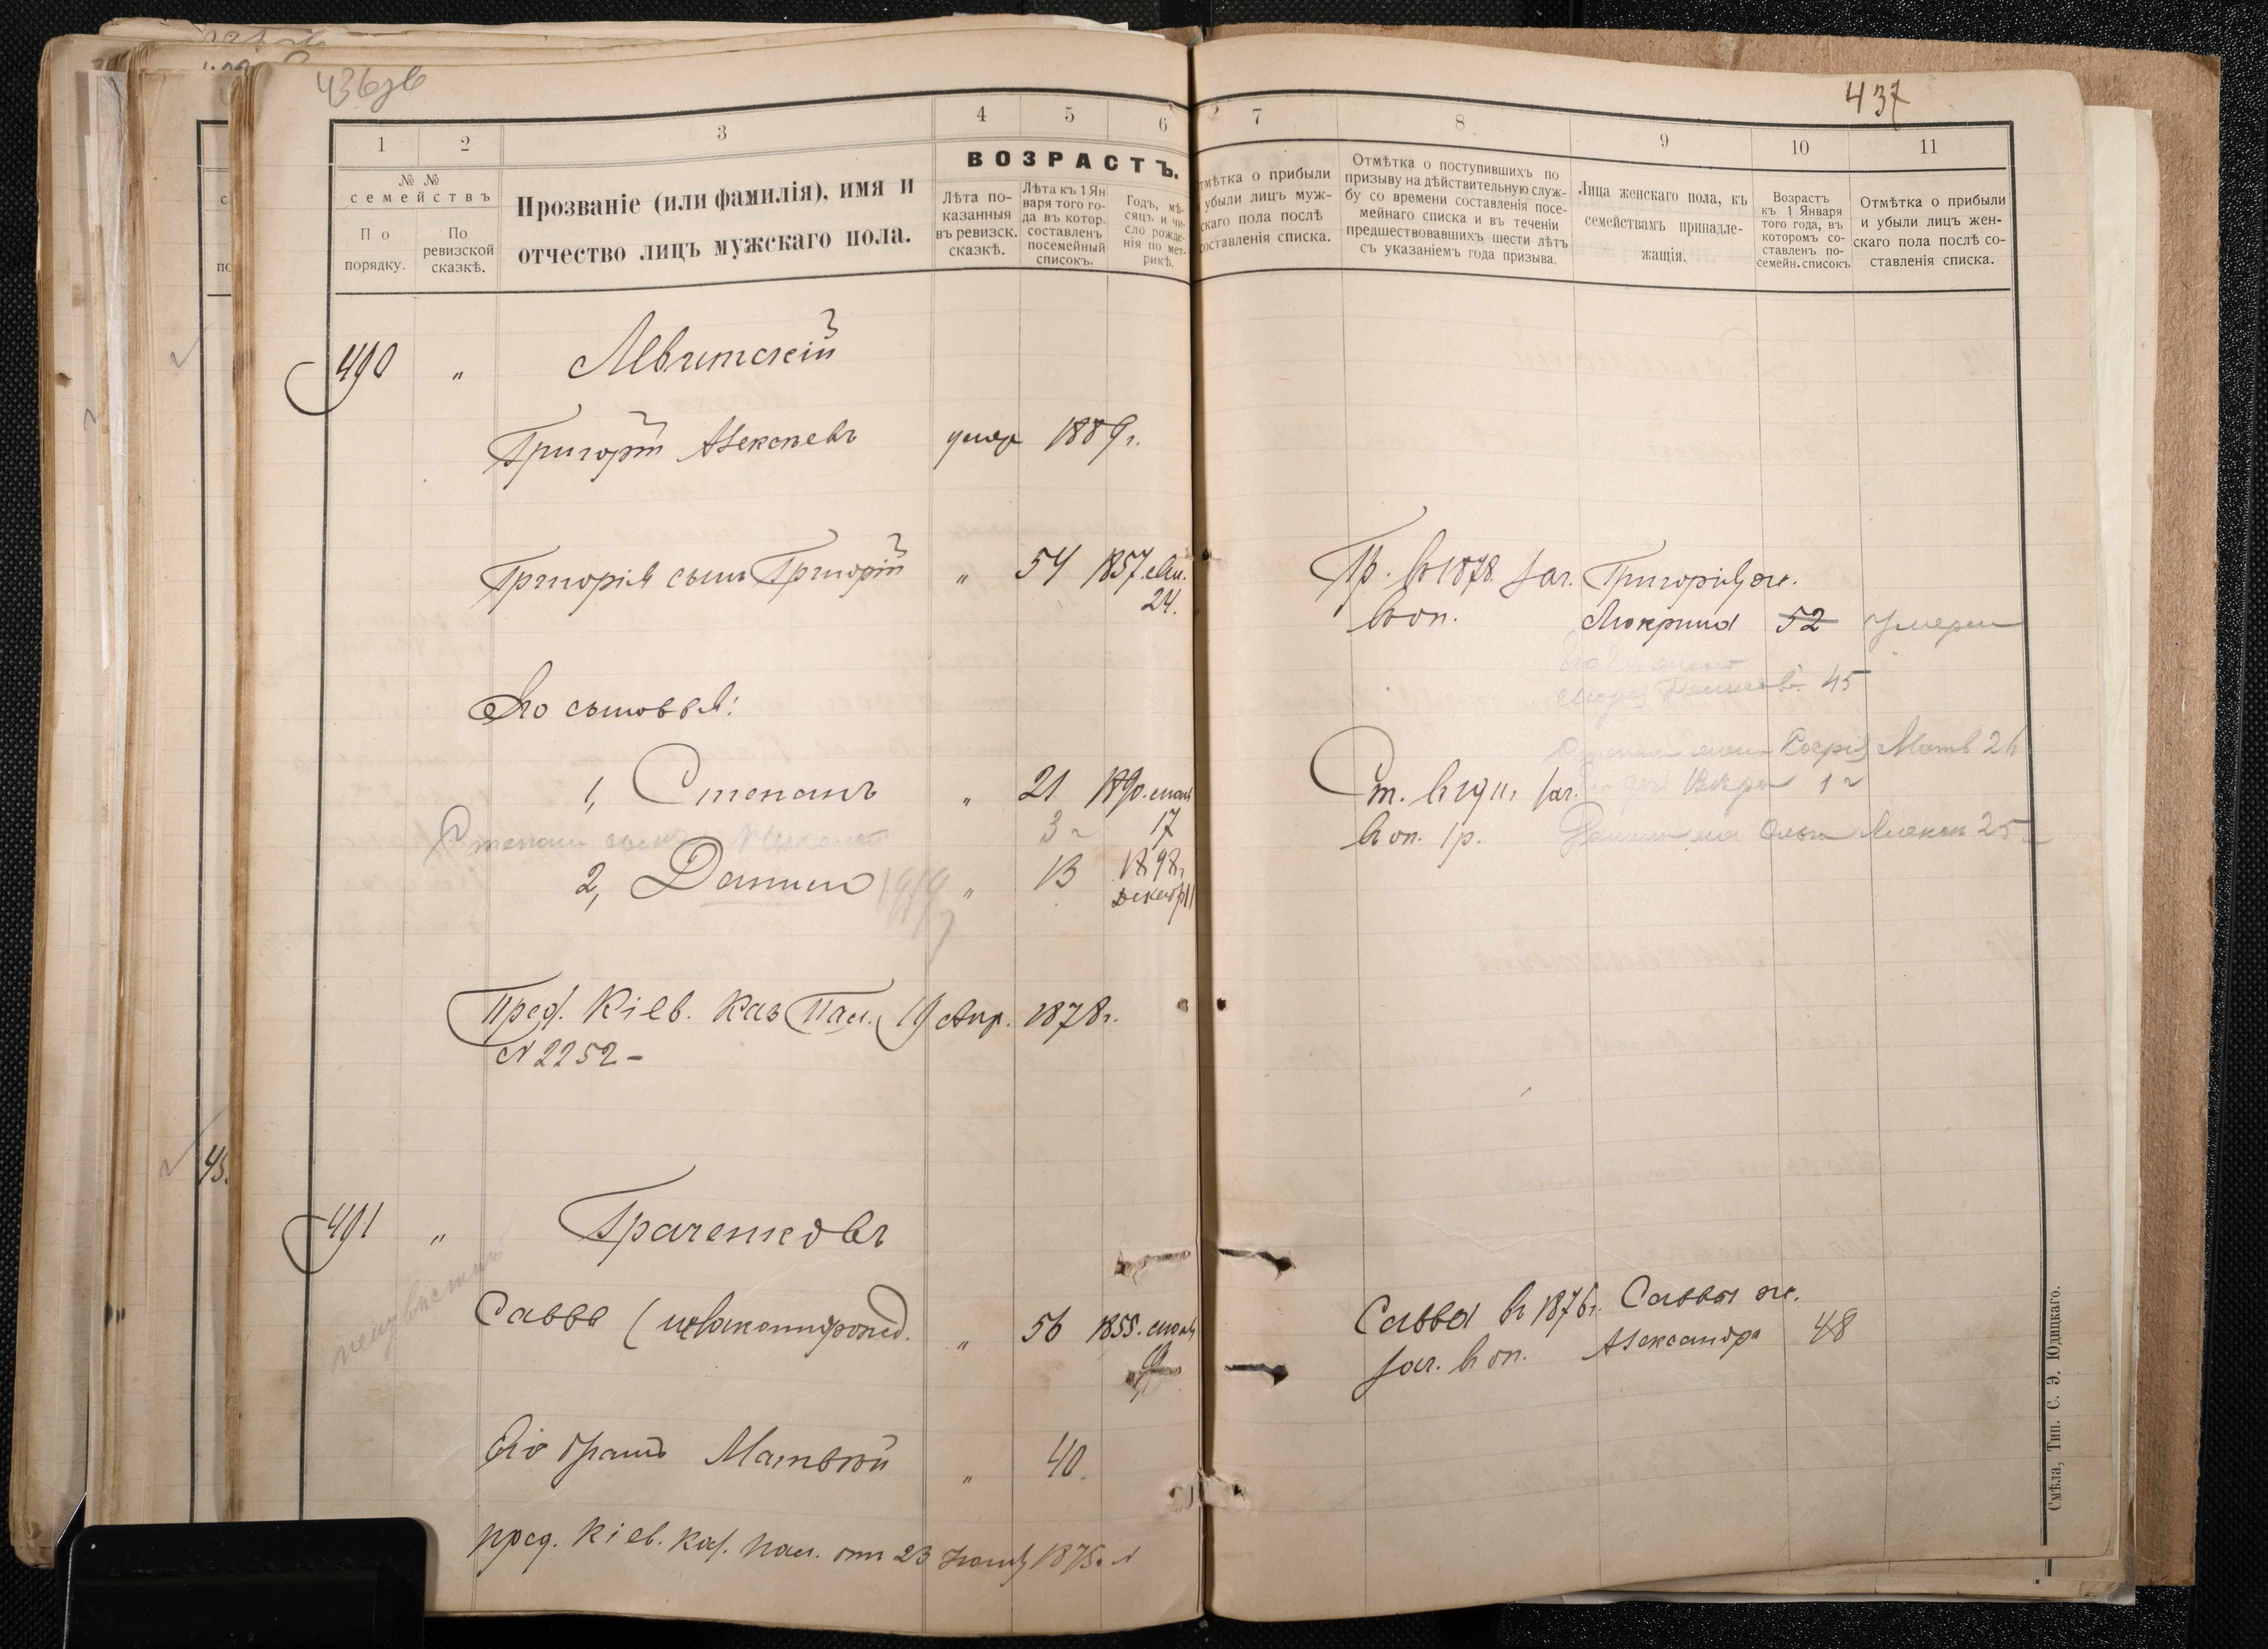 436зв
437
1
2
3
4
5
6
7
8
9
10
11
№ №
семействъ
По
порядку.
По
ревизской
сказкѣ.
Прозваніе (или фамилія), имя и
отчество лицъ мужскаго пола.
ВОЗРАСТЪ.
Лѣта по-
казанныя
въ ревизск.
сказкѣ.
Лѣта къ 1 Ян
варя того го-
да въ котор.
составленъ
посемейный
списокъ.
Годъ, мѣ-
сяцъ и чи-
сло рожде-
нія по мет-
рикѣ.
тмѣтка о прибыли
убыли лицъ муж-
скаго пола послѣ
составленія списка.
Отмѣтка о поступившихъ по
призыву на дѣйствительную служ-
бу со времени составленія посе-
мейнаго списка и въ теченіи
предшествовавшихъ шести лѣтъ
съ указаніемъ года призыва.
Лица женскаго пола, къ
семействамъ принадле-
жащія.
Возрастъ
къ 1 Января
того года, въ
которомъ со-
ставленъ по-
семейн. списокъ
Отмѣтка о прибыли
и убыли лицъ жен-
скаго пола послѣ со-
ставленія списка.
490 "
Григорій Алексѣевъ умер 1889 г.
Григорія сынъ Григорій " 54 1857
24.
Гр. въ 1878 зач. Григорія ж.
въ оп. 52 Умерла
45
Его сыновья:
1, Степанъ " 21 1890
17
Степана сынъ 3
Ст. въ 1911 зач. Вѣра 1
въ оп. 1 р. Ольга 25
2, Данило 1919 " 13 1898
Декабр 11
Пред. Кіев. Каз Пал. 19 Апр. 1878 г.
№ 2252 –
491 " Граченковъ
неизвѣстно
Савва (незаконнорожд. " 56 1855.
Савва въ 1876 г. Саввы ж.
зач. въ оп. Александра 48
Его братъ Матвѣй " 40.
пред. Кіев. Каз. пал. отъ 23 1875 г. №
45.
Смѣла, Тип. С. Э. Юдицкаго.